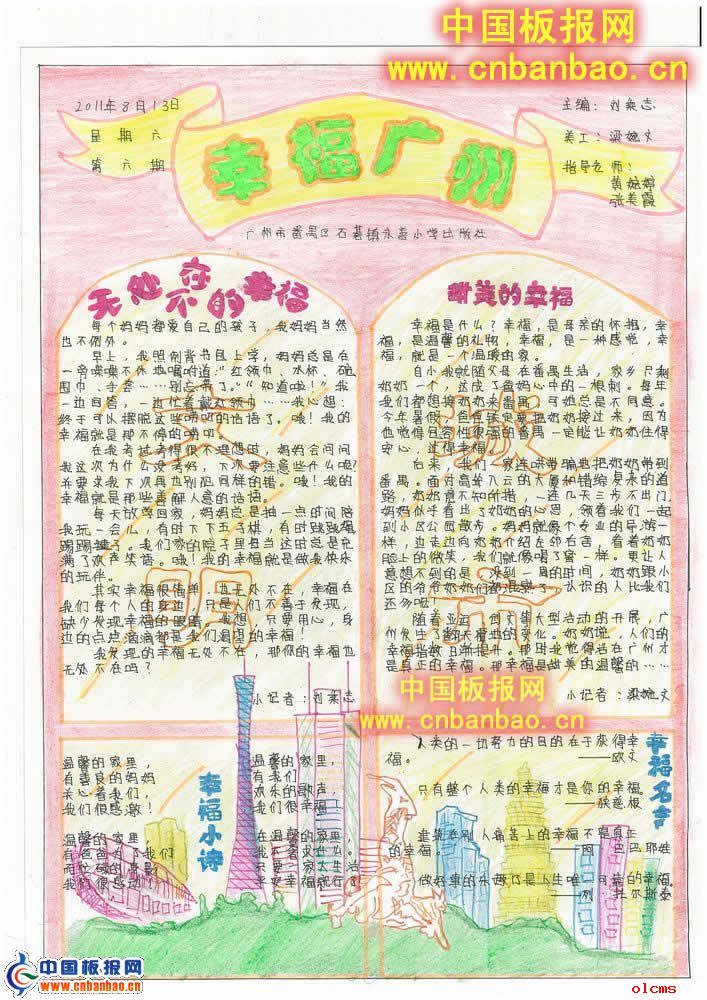 中国板报网
www.cnbanbao.cn
2011年8月13日
星期六
第六期
幸福广州
主编：刘秉志
美工：梁婉文
指导老师：
黄婉婷
张美霞
广州市番禺区石碁镇永善小学出版社
无处不在的幸福
每个妈妈都爱自己的孩子，我妈妈当然
也不例外。
早上，我照例背书包上学，妈妈总是在
一旁喋喋不休地唱叨道：“红领巾、水杯、砸
围巾、手套……别忘带了。”“知道啦！”我
一边回答，一边忙着戴红领巾……我心想：
终于可以摆脱这些唠叨的话语了。哦！我的
幸福就是那不停的唠叨。
在我考试考得很不理想时，妈妈会问问
我这次为什么没考好，下次要注意些什么呢？
并要求我下次再也别犯同样的错。哦！我的
幸福就是那些善解人意的话语。
每天放学回家，妈妈总是抽一点时间陪
我玩一会儿，有时下下五子棋，有时跳跳绳
踢踢毽子。我们家的院子里每当这时总是充
满了欢声笑语。哦！我的幸福就是做我快乐
的玩伴。
其实幸福很简单，也无处不在，幸福在
我们每个人的身边，只是人们不善于发现，
缺少发现幸福的眼睛。我想，只要用心，身
边的点点滴滴都是我们温思的幸福！
我发现的幸福无处不在，那你的幸福也
无处不在吗？
小记者：刘秉志
甜美的幸福
幸福是什么？幸福，是母亲的怀抱，幸
福，是温馨的礼物，幸福，是一种感觉，幸
福，就是一个温暖的家。
自小我就随父母在番禺生活，家乡只剩
奶奶一个，这成了爸妈心中的一根刺。每年
我们都想接奶奶来番禺，可她总是不同意。
今年暑假，爸爸铁定要把奶奶接过来，因为
他觉得包容性很强的番禺一定能让奶奶住得
安心，过得幸福。
后来，我们一家连哄带骗地把奶奶带到
番禺。面对高耸入云的大厦和错综复杂的道
路，奶奶竟不知所措，一连几天三步不出门。
妈妈似乎看出了奶奶的心思，领着我们一起
到小区公园散步。妈妈就像个专业的导游一
样，边走边向奶奶介绍左邻右舍，看着奶奶
脸上的微笑，我们就像喝了蜜一样。更让人
意想不到的是，没到一周的时间，奶奶跟小
区的爷爷奶奶们都混熟了，认识的人比我们
还多呢！
随着亚运、创文等大型活动的开展，广
州发生了翻天覆地的变化。奶奶说，人们的
幸福指数日渐提升。那时我觉得活在广州才
是真正的幸福。那是甜美的温馨的……
小记者：梁婉文
中国板报网
www.cnbanbao.cn
温馨的家里，
有善良的妈妈
关心着我们，
我们很感激！
温馨的家里
有爸爸为了我们
而忙碌的身影
我们很感动
幸福小诗
温馨的家里，
有我们
欢乐的歌声，
我们很幸福！
在温馨的家里
我不奢求什么
只要一家人生活
平平安安就行了
幸福名言
人类的一切努力的目的在于获得幸
福。
——欧文
只有整个人类的幸福才是你的幸福。
——狄慈根
建筑在别人痛苦上的幸福不是真正
的幸福。
——阿·巴巴耶娃
做好事的乐趣乃是人生唯一可靠的幸福。
——列·托尔斯泰
中国板报网
www.cnbanbao.cn
olcms